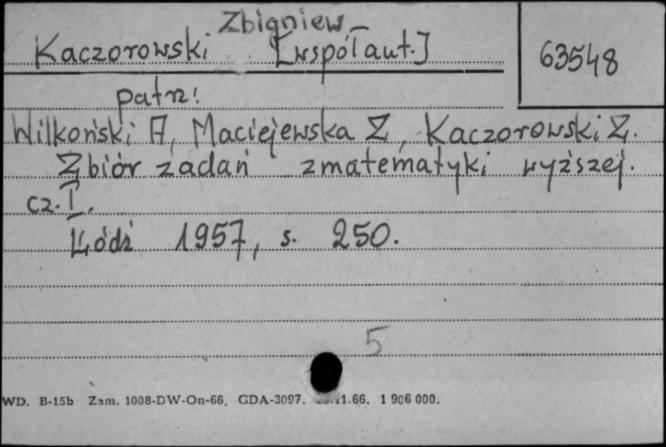 Zbigniew
Kaczorowski [współaut.]
63548
patrz:
Wilkoński A, Maciejewska Z, Kaczorowski Z.
Zbiór zadań z matematyki wyższej.
cz. I.
Łódź 1957, s. 250.
5
WD. B-15b Zam. 1008-DW-On-66. GDA-3097. 11.66. 1 906 000.